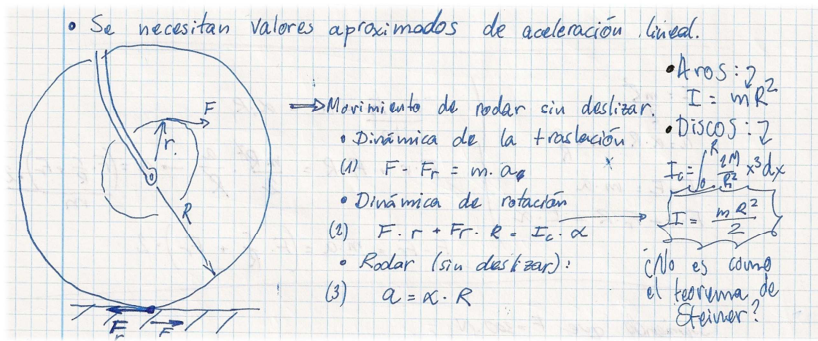 • Se necesitan valores aproximados de aceleración lineal.
⇒ Movimiento de rodar sin deslizar.
• Dinámica de la traslación
(1) F - Fr = m · a
• Dinámica de rotación
(2) F · r + Fr · R = Ic · α
• Rodar (sin deslizar):
(3) a = α · R
• Aros:
I = mR²
• Discos:
Ic = ∫₀ᴿ 2M/R² x³ dx
I = mR²/2
¿No es como
el teorema de
Steiner?
F
r
R
Fr
F